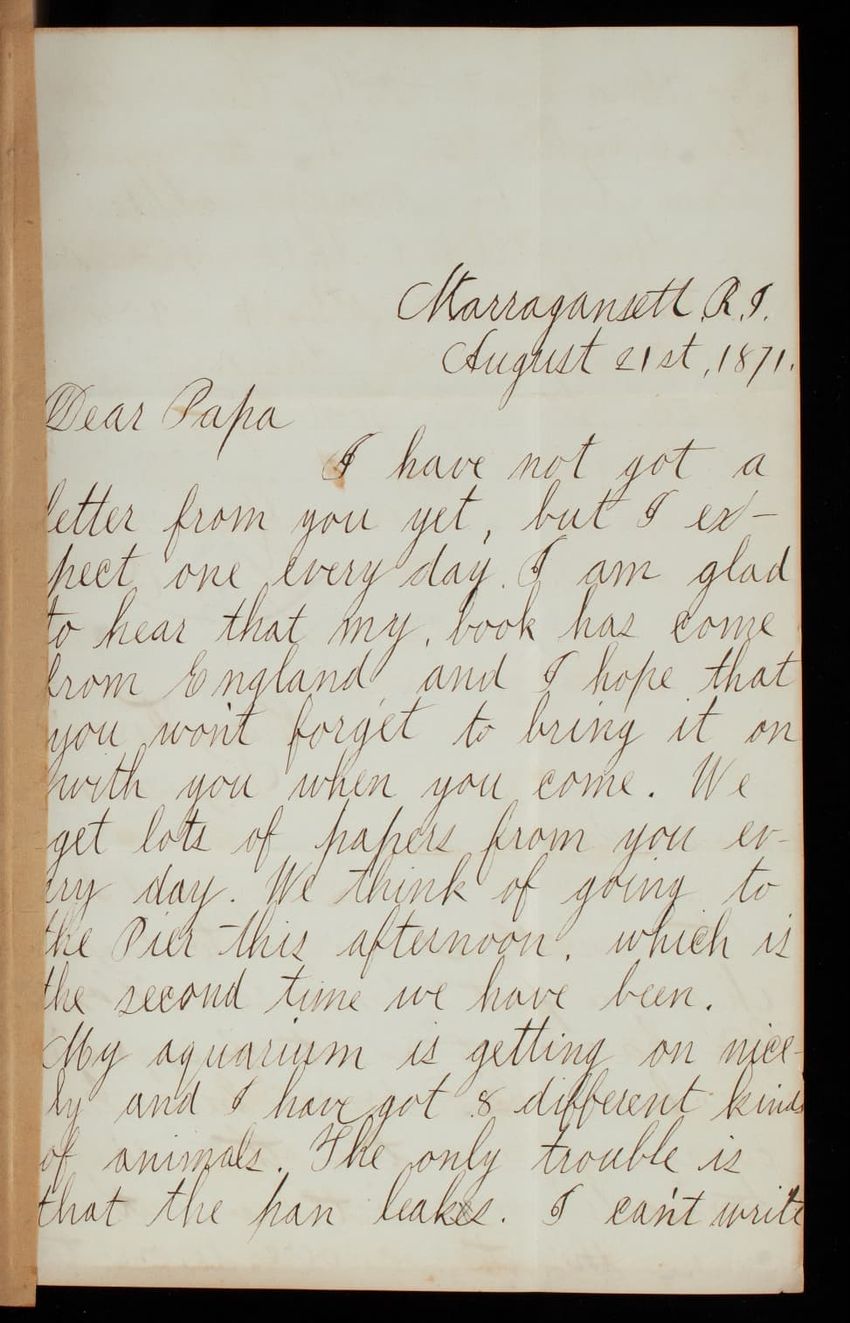 Narragansett, R.I.
August 21st, 1871.
Dear Papa
I have not got a
letter from you yet, but I ex-
pect one every day. I am glad
to hear that my book has come
from England and I hope that
you won't forget to bring it on
with you when you come. We
get lots of papers from you ev-
ery day. We think of going to
the Pier this afternoon, which is
the second time we have been.
My aquarium is getting on nice-
ly and I have got 8 different kinds
of animals. The only trouble is
that the pan leakes. I can't write